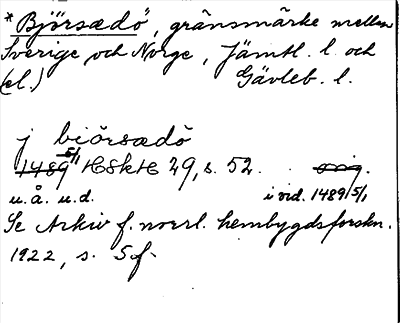 *Björsædö, gränsmärke mellan
Sverige och Norge, Jämtl. l. och
(el.) Gävleb. l.
j biörsædö
1489 5/1 HSkH 29, s. 52. orig.
u.å. u.d. i vid. 1489 5/1,
Se Arkiv f. norrl. hembygdsforskn.
1922, s. 5 f.